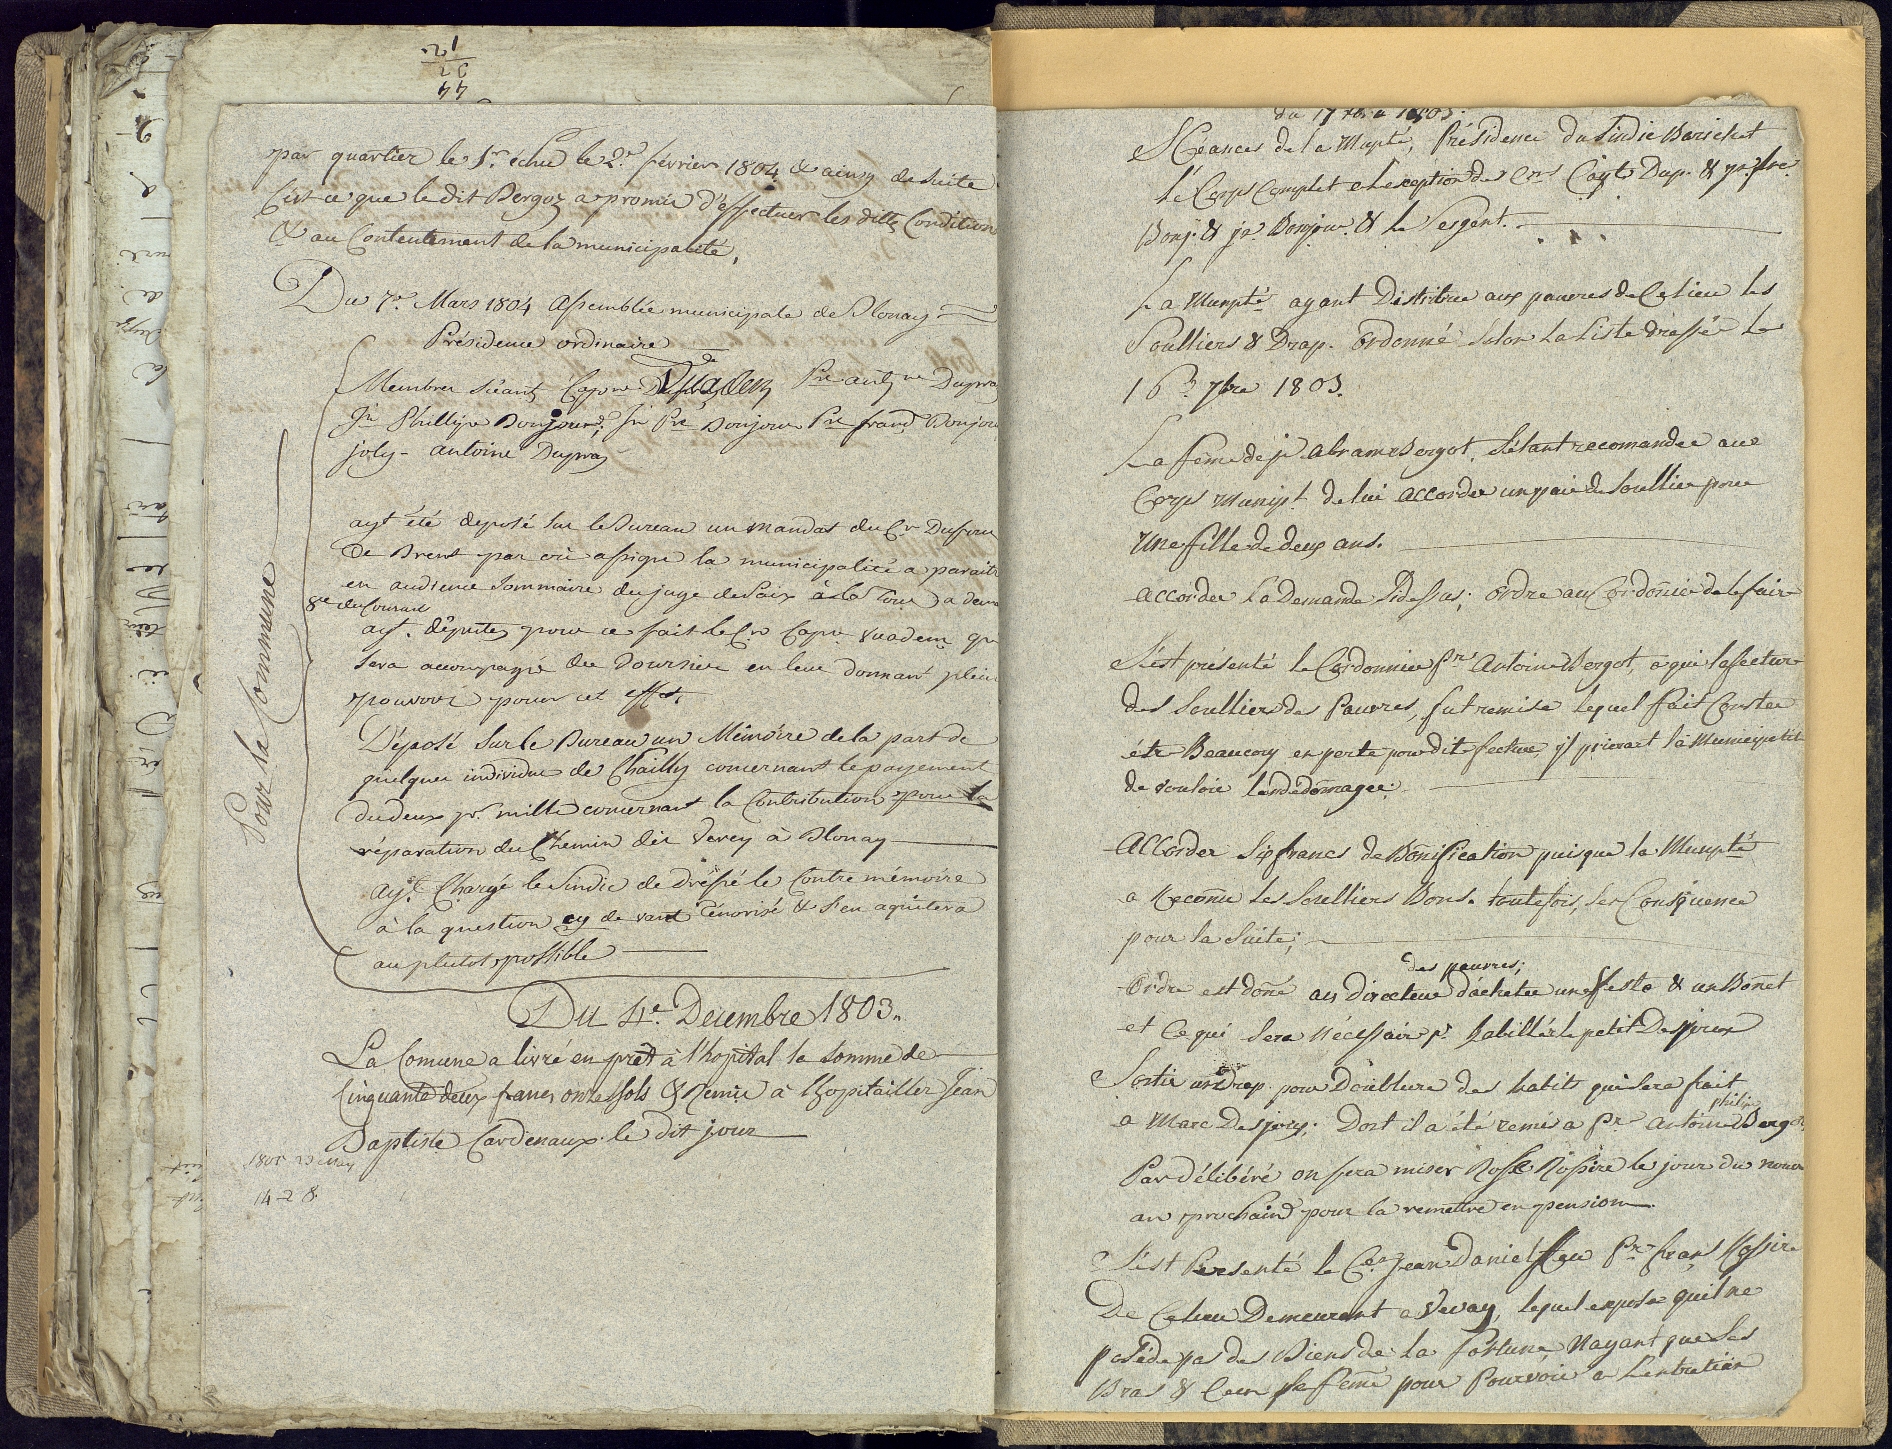 par quartier le 1er échu le 2e février 1804 & ainsy de suite
C'est ce que le dit Bergoz a promis d'effectuer les dittes Condition
& au Contentement de la municipalité,
Du 7e Mars 1804 Assemblée municipale de Blonay
Présidence ordinaire
Membres séants Capne Vuadens Pre antne Dupra
Jn Phillipe Bonjour, Jn Pre Bonjour Pre frand Bonjour
joly - antoine Dupraz
Pour la Commune
ayt été deposé sur le Bureau un mandat du Cn Dufour
de Brent par où assigne la municipalité a paraitre
en audience sommaire du juge de Paix à la Tour a dem
8e du Courant
ayt. députés pour ce fait le Cn Capne Vuadens qu
sera accompagné du Boursier en leur donnant plein
pouvoir pour cet effet,
Déposé sur le Bureau un Mémoire de la part de
quelques individus de Chailly concernant le payement
du deux pr. mille concernant la Contribution pour la
réparation du Chemin dit Vevey à Blonay
ayt Chargé le Sindic de dréssé le Contre mémoire
à la question cy de vant Ténorisé & s'en aquitera
au plutot possible
Du 4e. Decembre 1803.
La Comune a livré en pret à l'hopital la somme de
Cinquante deux francs onze sols & Remis à lhopitaillier Jean
Baptiste Cardenaux le dit jour
14 - 2 8
du 17 1803.
Séances de la Munpté, Présidence du Sindic Borichet
le Corps Complet à l'exception des Cns Capte Dup. &
Bonj. & jn Bonjour & le Sergent.
La Munpté ayant Distribué aux pauvres de Ce lieu les
Soulliers & Drap. Ordonné selon la Liste dressée le
16e 7bre 1803.
La feme de jn Abram Bergot, S'étant recomandée au
Corps Munipt. de lui accorder un paire de Soullier pour
une fille de deux ans.
accorder La Demande Sidessus; ordre au Cordonier de le faire
S'est présenté le Cordonnier Pre Antoine Bergot, a qui la fecture
des Soulliers des Pauvres, fut remise lequel fait Conster
étre Beaucoup en perte pour dit fecture, y prierait la Municipalité
de vouloir le dédomager;
Accorder Six francs de Bonification puisque la Munpté
a Reconu les Soulliers Bons. toutefois, sans Conséquence
pour la Suite;
des pauvres;
Ordre est doné au directeur d'acheter une Veste & un Bonet
et Ce qui Sera nécessaire pr habillér le petit Despreux
Sortir un Drap pour Doublure des habits qui sera frait
philipe
a Marc Desjory; Dont il a été remis a Pre antoine Bergot
Par délibéré on fera miser Rose Rossire le jour du nouv
an prochaind pour la remettre en pension
S'est Presenté le Cen Jean Daniel ffeu Pre frans Rossire
De Celieu Demeurant a Vevay, lequel expose quil ne
posède pas des Biens de la fortune Nayant que Ses
Bras & Ceux sa feme pour Pourvoir a Lentretien